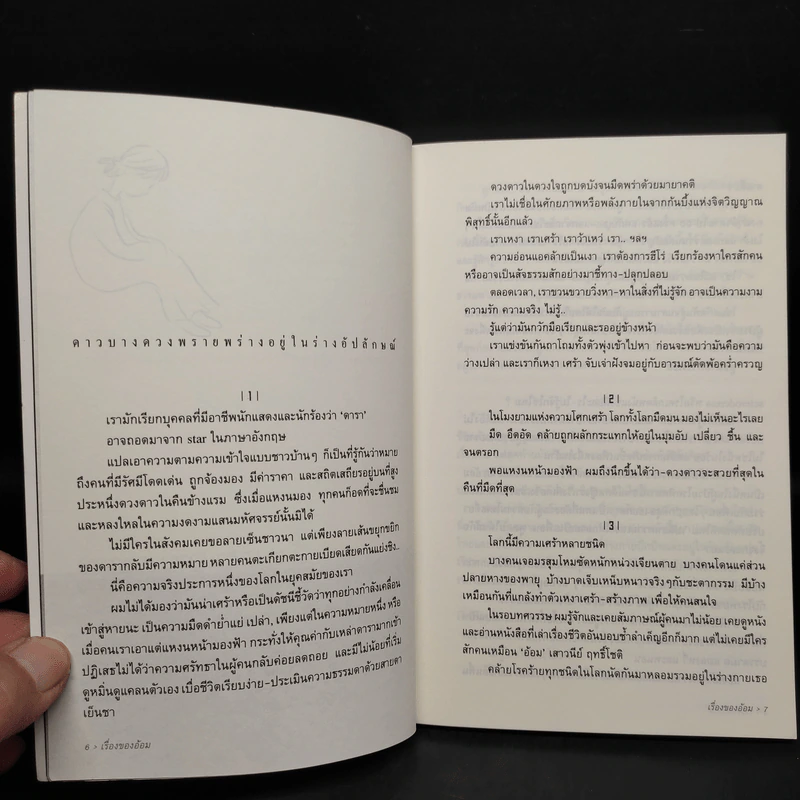 ดาวบางดวงพรายพร่างอยู่ในร่างอัปลักษณ์
|1|
เรามักเรียกบุคคลที่มีอาชีพนักแสดงและนักร้องว่า ‘ดารา’
อาจถอดมาจาก star ในภาษาอังกฤษ
แปลเอาความตามความเข้าใจแบบชาวบ้านๆ ก็เป็นที่รู้กันว่าหมาย
ถึงคนที่มีรัศมีโดดเด่น ถูกจ้องมอง มีค่าราคา และสถิตเสถียรอยู่บนที่สูง
ประหนึ่งดวงดาวในคืนข้างแรม ซึ่งเมื่อแหงนมอง ทุกคนก็อดที่จะชื่นชม
และหลงใหลในความงดงามแสนมหัศจรรย์นั้นมิได้
ไม่มีใครในสังคมเคยขอลายเซ็นชาวนา แต่เพียงลายเส้นขยุกขยิก
ของดารากลับมีความหมาย หลายคนตะเกียกตะกายเบียดเสียดกันแย่งชิง..
นี่คือความจริงประการหนึ่งของโลกในยุคสมัยของเรา
ผมไม่ได้มองว่ามันน่าเศร้าหรือเป็นดัชนีชี้วัดว่าทุกอย่างกำลังเคลื่อน
เข้าสู่หายนะ เป็นความมืดดำย่ำแย่ เปล่า, เพียงแต่ในความหมายหนึ่ง หรือ
เมื่อคนเราเอาแต่แหงนหน้ามองฟ้า กระทั่งให้คุณค่ากับเหล่าดารามากเข้า
ปฏิเสธไม่ได้ว่าความศรัทธาในผู้คนกลับค่อยลดถอย และมีไม่น้อยที่เริ่ม
ดูหมิ่นดูแคลนตัวเอง เบื่อชีวิตเรียบง่าย-ประเมินความธรรมดาด้วยสายตา
เย็นชา
6 > เรื่องของอ้อม
ดวงดาวในดวงใจถูกบดบังจนมืดพร่าด้วยมายาคติ
เราไม่เชื่อในศักยภาพหรือพลังภายในจากก้นบึ้งแห่งจิตวิญญาณ
พิสุทธิ์นั้นอีกแล้ว
เราเหงา เราเศร้า เราว้าเหว่ เรา.. ฯลฯ
ความอ่อนแอคล้ายเป็นเงา เราต้องการฮีโร่ เรียกร้องหาใครสักคน
หรืออาจเป็นสัจธรรมสักอย่างมาชี้ทาง-ปลุกปลอบ
ตลอดเวลา, เราขวนขวายวิ่งหา-หาในสิ่งที่ไม่รู้จัก อาจเป็นความงาม
ความรัก ความจริง ไม่รู้..
รู้แต่ว่ามันกวักมือเรียกและรออยู่ข้างหน้า
เราแข่งขันกันถาโถมทั้งตัวพุ่งเข้าไปหา ก่อนจะพบว่ามันคือความ
ว่างเปล่า และเราก็เหงา เศร้า จับเจ่าฝังจมอยู่กับอารมณ์ตัดพ้อคร่ำครวญ
|2|
ในโมงยามแห่งความโศกเศร้า โลกทั้งโลกมืดมน มองไม่เห็นอะไรเลย
มืด อึดอัด คล้ายถูกผลักกระแทกให้อยู่ในมุมอับ เปลี่ยว ชื้น และ
จนตรอก
พอแหงนหน้ามองฟ้า ผมถึงนึกขึ้นได้ว่า-ดวงดาวจะสวยที่สุดใน
คืนที่มืดที่สุด
|3|
โลกนี้มีความเศร้าหลายชนิด
บางคนเจอมรสุมโหมซัดหนักหน่วงเจียนตาย บางคนโดนแค่ส่วน
ปลายหางของพายุ บ้างบาดเจ็บเหน็บหนาวจริงๆกับชะตากรรม มีบ้าง
เหมือนกันที่แกล้งทำตัวเหงาเศร้า-สร้างภาพ เพื่อให้คนสนใจ
ในรอบทศวรรษ ผมรู้จักและเคยสัมภาษณ์ผู้คนมาไม่น้อย เคยดูหนัง
และอ่านหนังสือที่เล่าเรื่องชีวิตอันบอบช้ำสำเค็ญอีกก็มาก แต่ไม่เคยมีใคร
สักคนเหมือน ‘อ้อม’ เสาวนีย์ ฤทธิ์โชติ
คล้ายโรคร้ายทุกชนิดในโลกนัดกันมาหลอมรวมอยู่ในร่างกายเธอ
เรื่องของอ้อม > 7